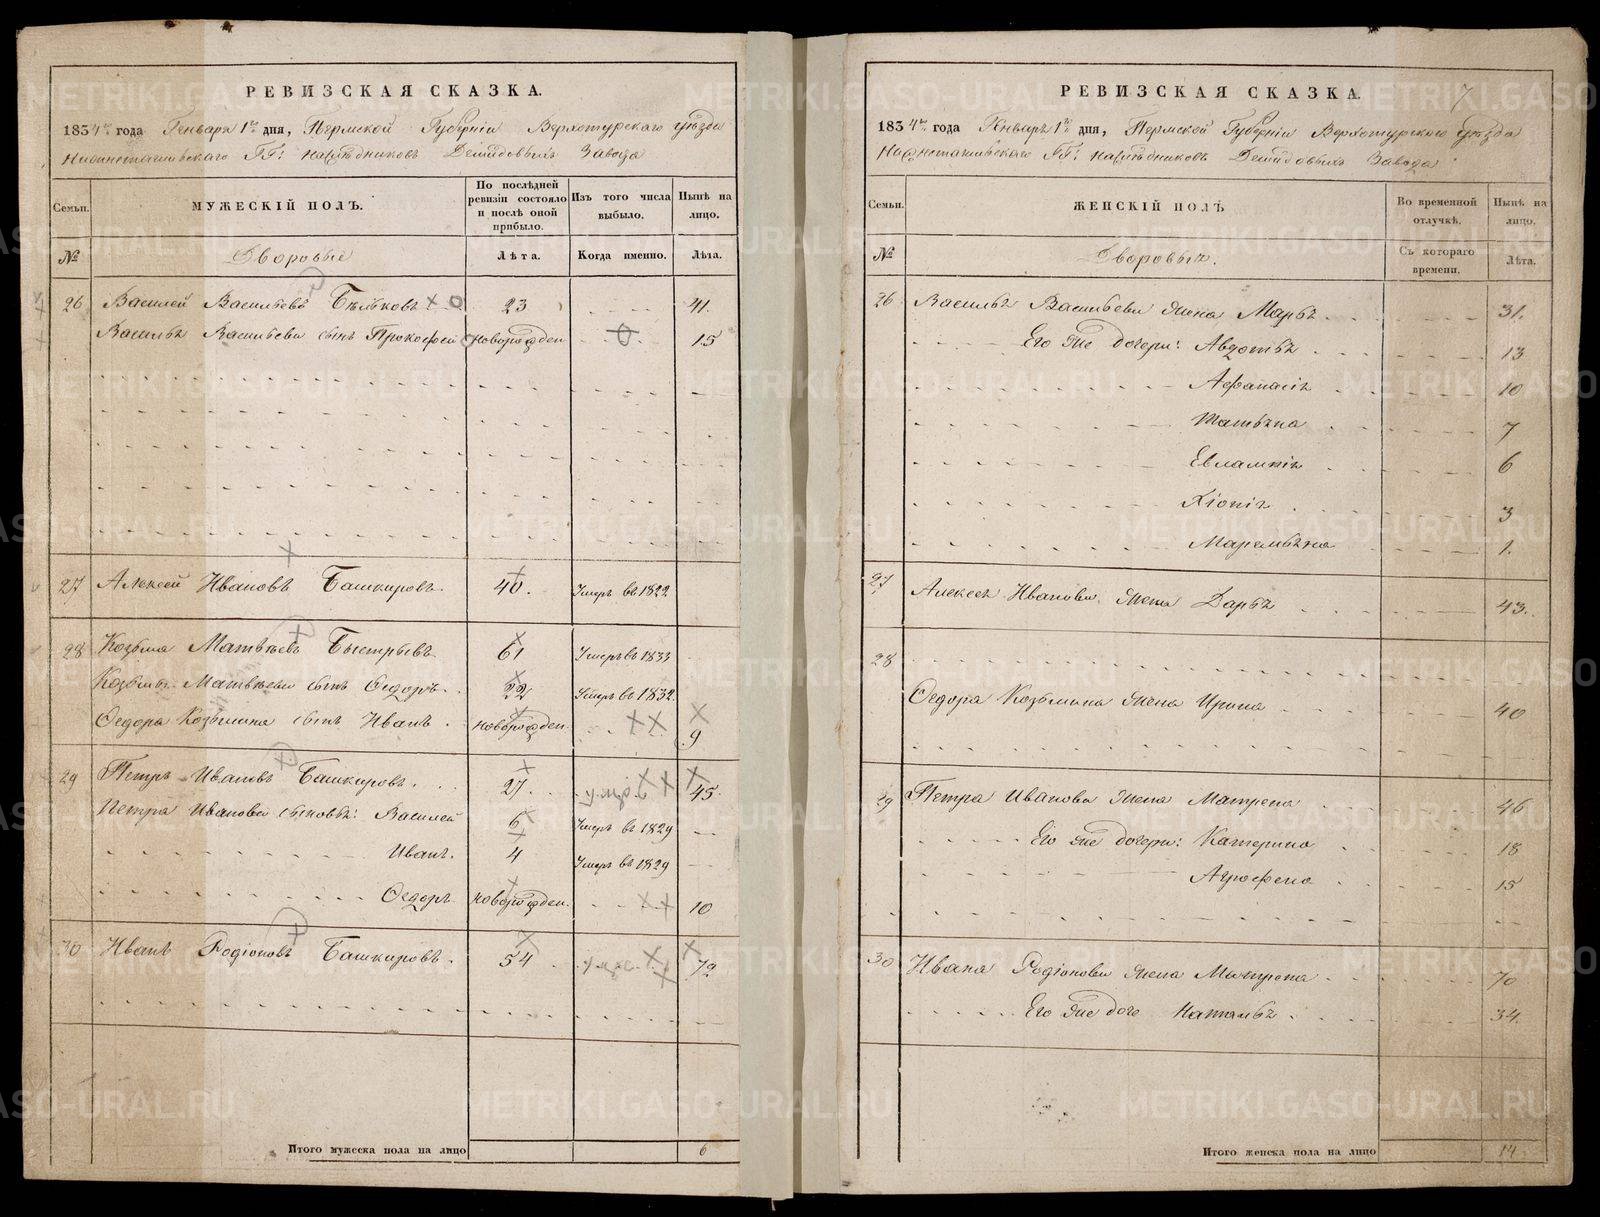 РЕВИЗСКАЯ СКАЗКА.
1834 го года Генваря 1 го дня, Пермской Губерніи Верхотурскаго уѣзда
Нижнетагильскаго ГГ: наслѣдниковъ Демидовыхъ Завода
Семьи.
МУЖЕСКІЙ ПОЛЪ.
По послѣдней ревизіи состояло и послѣ оной прибыло.
Изъ того числа выбыло.
Нынѣ на лицо.
№
Дворовые
Лѣта.
Когда именно.
Лѣта.
26 Василей Васильевъ Бѣлковъ 23 41.
Василья Васильева сынъ Прокофей новорожден 15
27 Алексей Ивановъ Башкировъ. 40. Умеръ въ 1822
28 Козьма Матвѣевъ Быстрыхъ 61 Умеръ въ 1833
Козьмы Матвѣева сынъ Ѳедоръ. 22 Умеръ въ 1832.
Ѳедора Козьмина сынъ Иванъ. новорожден. 9
29 Петръ Ивановъ Башкировъ. 27. 45.
Петра Иванова сыновья: Василей 6 Умеръ въ 1829
Иванъ. 4 Умеръ въ 1829
Ѳедоръ. новорожден. 10
30 Иванъ Родіоновъ Башкировъ. 54 72
Итого мужеска пола на лицо 6
РЕВИЗСКАЯ СКАЗКА.
7
1834 го года Генваря 1 го дня, Пермской Губерніи Верхотурскаго уѣзда
Нижнетагильскаго ГГ: наслѣдниковъ Демидовыхъ Завода
Семьи.
ЖЕНСКІЙ ПОЛЪ
Во временной отлучкѣ.
Нынѣ на лицо.
№
Дворовыя.
Съ котораго времени.
Лѣта.
26 Василья Васильева жена Марья 31.
Его же дочери: Авдотья 13
Афанасія 10
Татьяна 7
Евлампія 6
Хіонія 3
Маремьяна 1.
27 Алексея Иванова жена Дарья 43.
28
Ѳедора Козьмина жена Ирина 40
29 Петра Иванова жена Матрена 46
Его же дочери: Катерина 18
Агрофена 15
30 Ивана Родіонова жена Матрена 70
Его же дочь Наталья 34.
Итого женска пола на лицо 14
METRIKI.GASO-URAL.RU